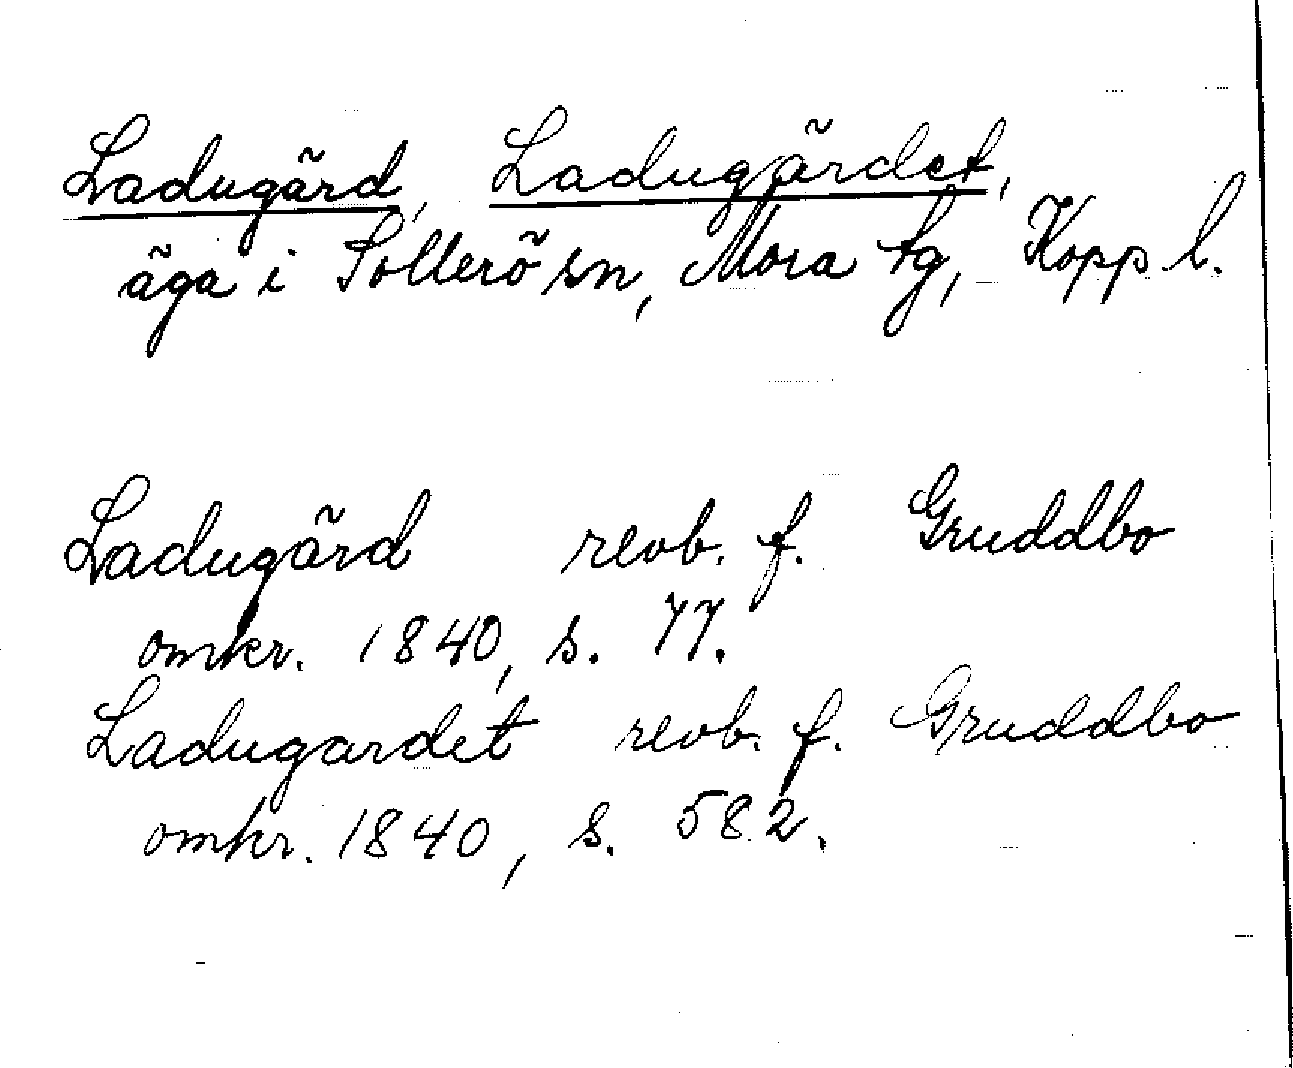 Ladugärd, Ladugärdet,
äga i Sollerö sn, Mora tg, Kopp l.
Ladugärd revb. f. Gruddbo
omkr. 1840, s. 77.
Ladugardet revb. f. Gruddbo
omkr. 1840, s. 582.